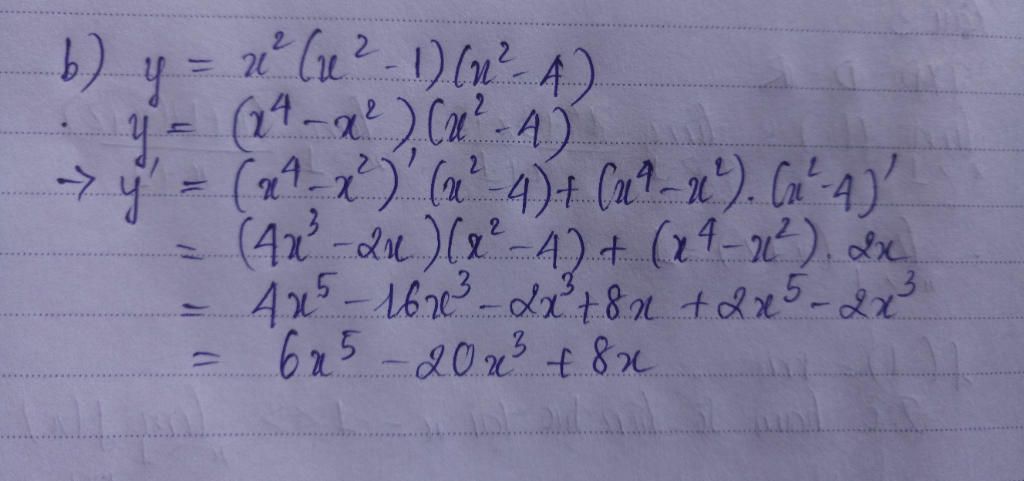 b) y = x²(x²-1)(x²-4)
. y = (x⁴-x²).(x²-4)
→ y' = (x⁴-x²)'.(x²-4)+(x⁴-x²).(x²-4)'
= (4x³-2x)(x²-4)+(x⁴-x²).2x
= 4x⁵-16x³-2x³+8x+2x⁵-2x³
= 6x⁵-20x³+8x